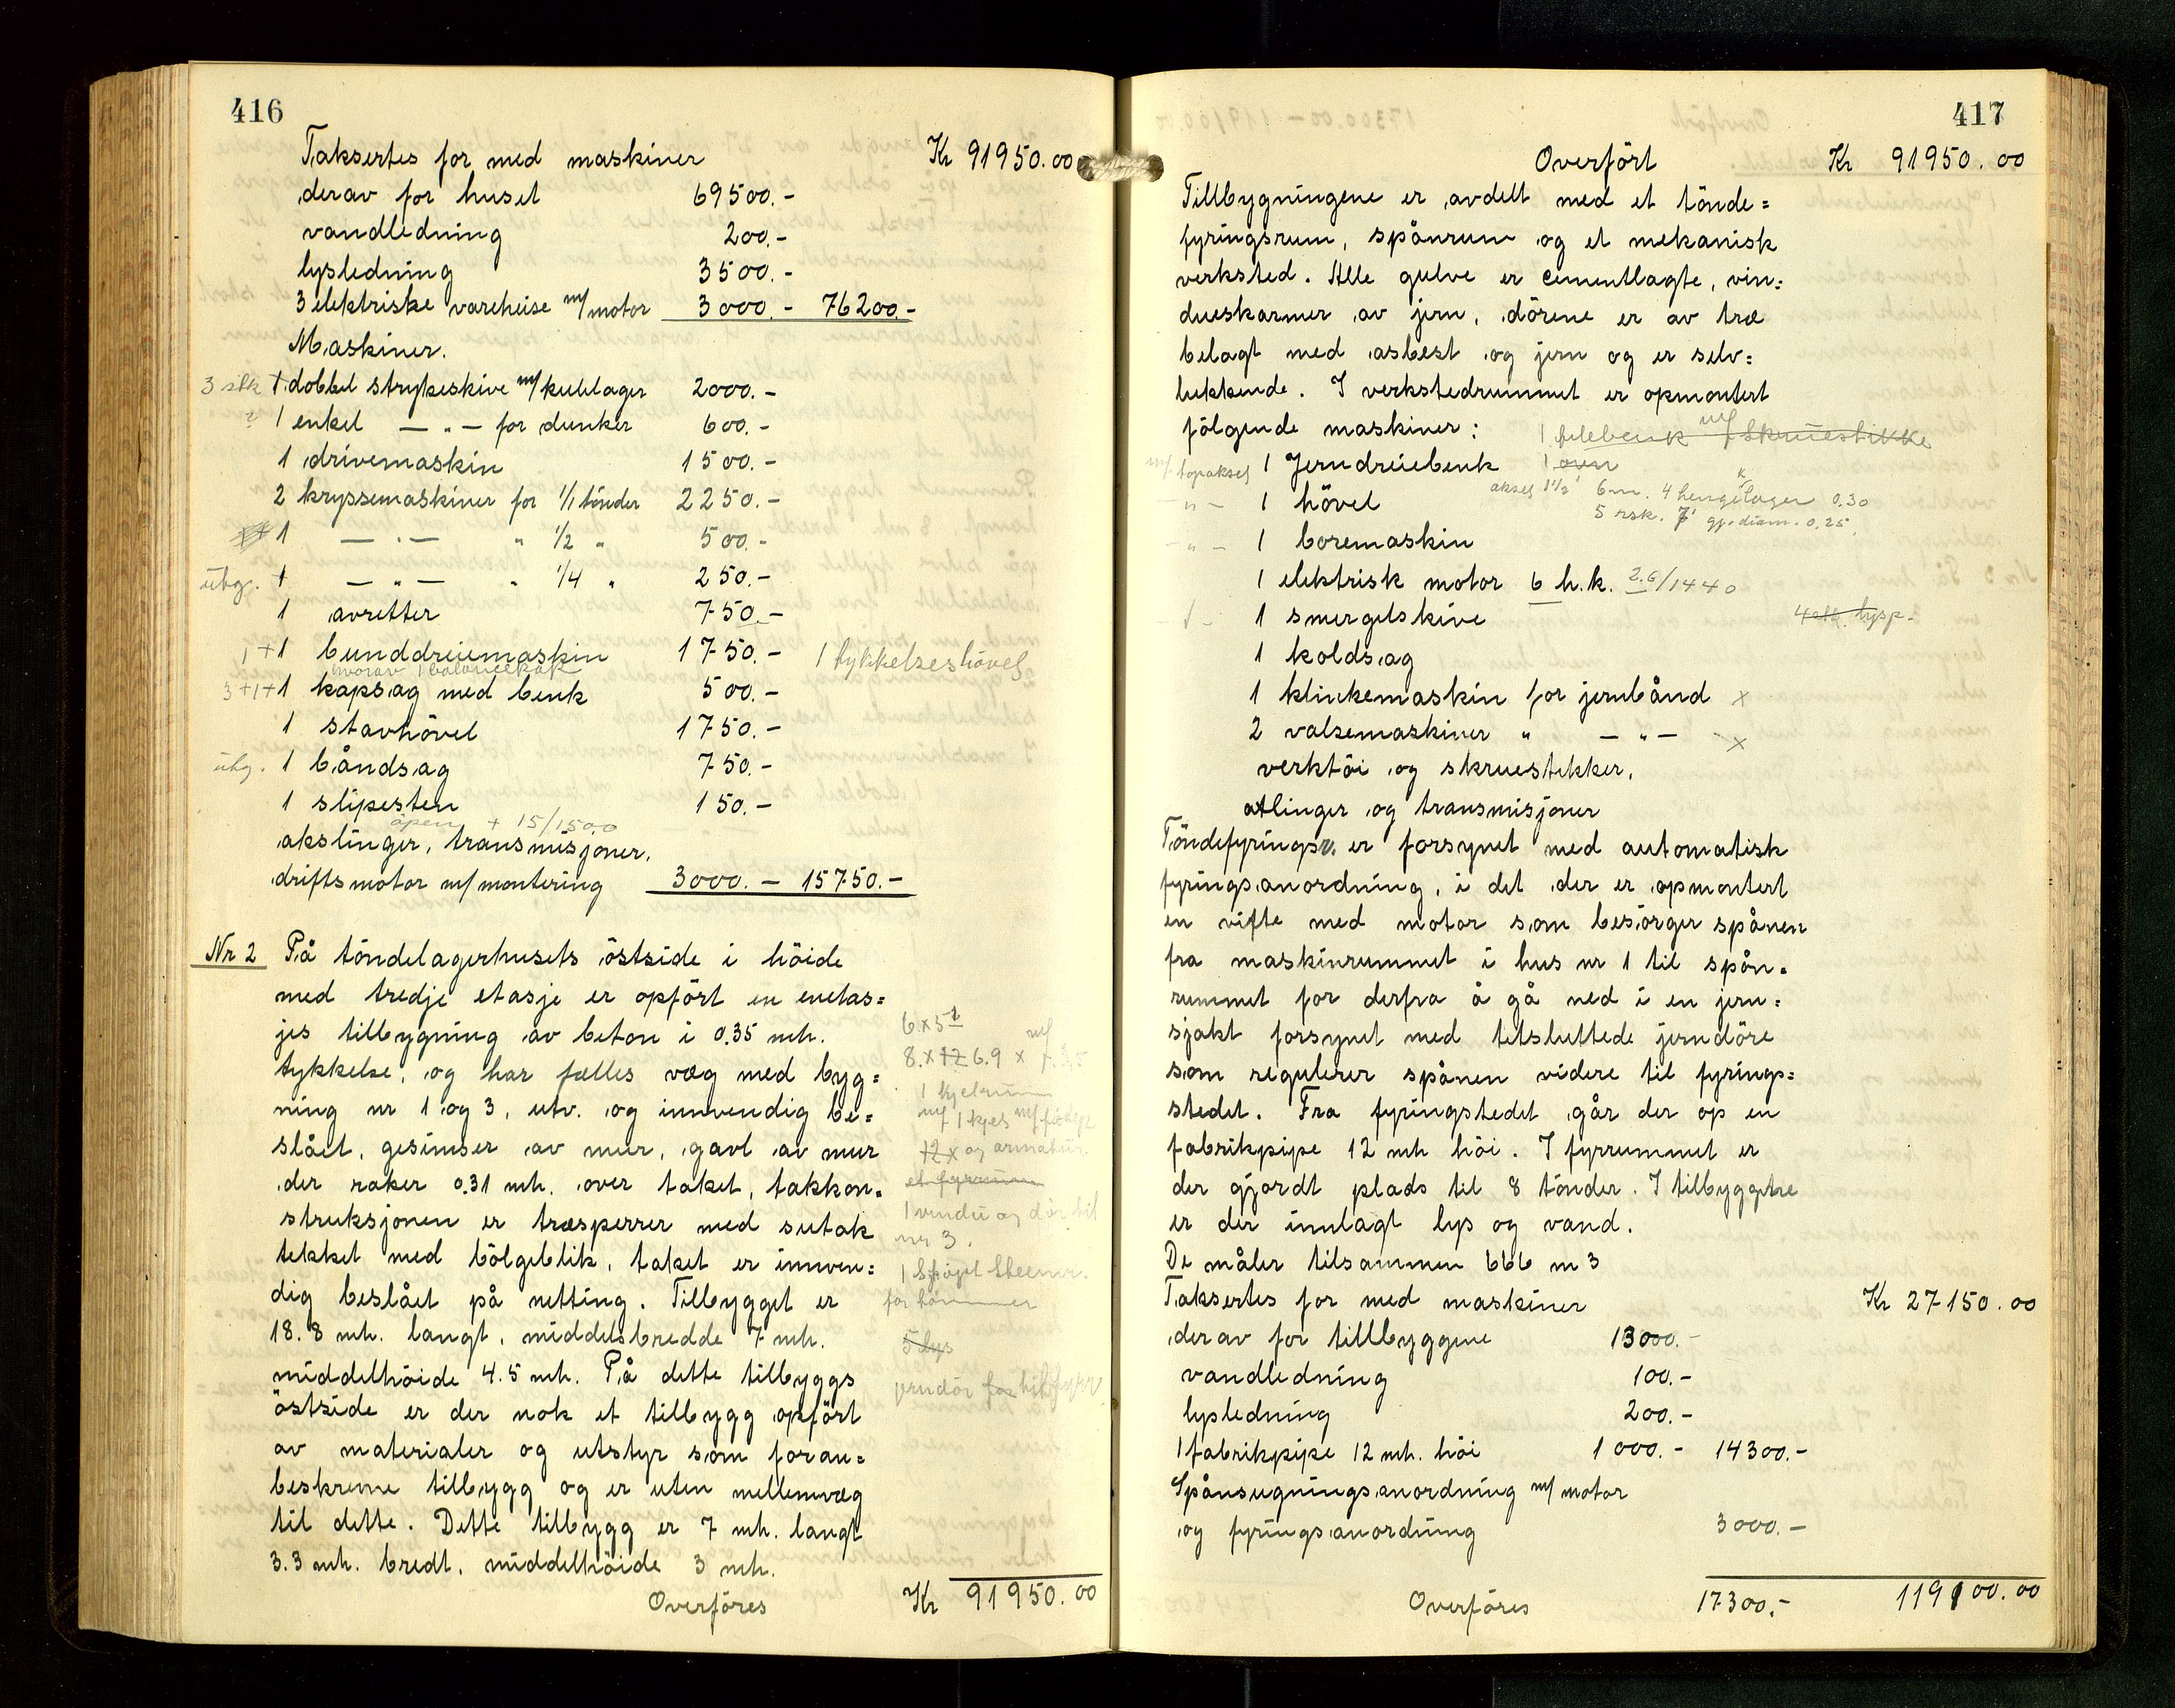 416
Taksertes for med maskiner Kr 91950.00
derav for huset 69500.-
vandledning 200.-
lysledning 3500.-
3 elektriske vareheise m/motor 3000.- 76200.-
Maskiner.
3 stk 1 dobbel strykeskive m/kulelager 2000.-
2 1 enkel — " — for dunker 600.-
1 drivemaskin 1500.-
2 kryssemaskiner for 1/1 tönder 2250.-
1 — " — " 1/2 " 500.-
utg. 1 — " — " 1/4 " 250.-
1 avretter 750.-
1+1 bunddreiemaskin 1750.- 1 tykkelseshövel
hvorav 1 balancekap
3+1+1 kapsag med benk 500.-
1 stavhövel 1750.-
utg. 1 båndsag 750.-
1 slipesten 150.-
åpen + 15/1500
akslinger, transmisjoner,
driftsmotor m/montering 3000.- 15750.-
Nr 2 På töndelagerhusets östside i höide
med tredje etasje er opfört en enetas=
jes tilbygning av beton i 0.35 mtr.
tykkelse, og har fælles væg med byg=
ning nr 1 og 3, utv. og innvendig be=
slået, gesimser av mur, gavl av mur
der raker 0.31 mtr. over taket, takkon=
struksjonen er træsperrer med sutak
tekket med bölgeblik, taket er innven=
dig beslået på netting. Tilbygget er
18.8 mtr. langt, middelsbredde 7 mtr.
middelhöide 4.5 mtr. På dette tilbyggs
östside er der nok et tilbygg opfört
av materialer og utstyr som foran=
beskrevne tilbygg og er uten mellemvæg
til dette. Dette tilbygg er 7 mtr. langt
3.3 mtr. bredt, middelhöide 3 mtr.
6 x 5
8. x 12 6.9 x
1 kjelrum
12 x og armatur.
et fyrrum
1 vindu og dör til
nr 3.
5 lys
Overföres Kr 91950.00
417
Overfört Kr 91950.00
Tillbygningene er avdelt med et tönde=
fyringsrum, spånrum og et mekanisk
verksted. Alle gulve er cementlagte, vin=
dueskarmer av jern, dörene er av træ
belagt med asbest og jern og er selv=
lukkende. I verkstedrummet er opmontert
fölgende maskiner: 1 filebenk m/ 1 skruestikke
m/ topaksel 1 Jerndreiebenk 1 oven
— " — 1 hövel aksel 1 1/2' 6 m. 4 hengelager 0.30
5 rsk. 7' gj. diam. 0.25
— " — 1 boremaskin
1 elektrisk motor 6 h.k. 2.6/1440
1 smergelskive 4 stk. lysp.
1 koldsag
1 klinkemaskin for jernbånd x
2 valsemaskiner " — " — x
verktöi og skruestikker,
atlinger og transmisjoner
Töndefyringsr. er forsynet med automatisk
fyringsanordning, i det der er opmontert
en vifte med motor som besörger spånen
fra maskinrummet i hus nr 1 til spån=
rummet for derfra å gå ned i en jern=
sjakt forsynet med tetsluttede jerndöre
som regulerer spånen videre til fyrings=
stedet. Fra fyringstedet går der op en
fabrikpipe 12 mtr höi. I fyrrummet er
der gjordt plads til 8 tönder. I tilbyggene
er der innlagt lys og vand.
De måler tilsammen 666 m3
Taksertes for med maskiner Kr 27150.00
derav for tillbyggene 13000.-
vandledning 100.-
lysledning 200.-
1 fabrikpipe 12 mtr. höi 1000.- 14300.-
Spånsugningsanordning m/motor
og fyringsanordning 3000.-
Overföres 17300.- 119100.00